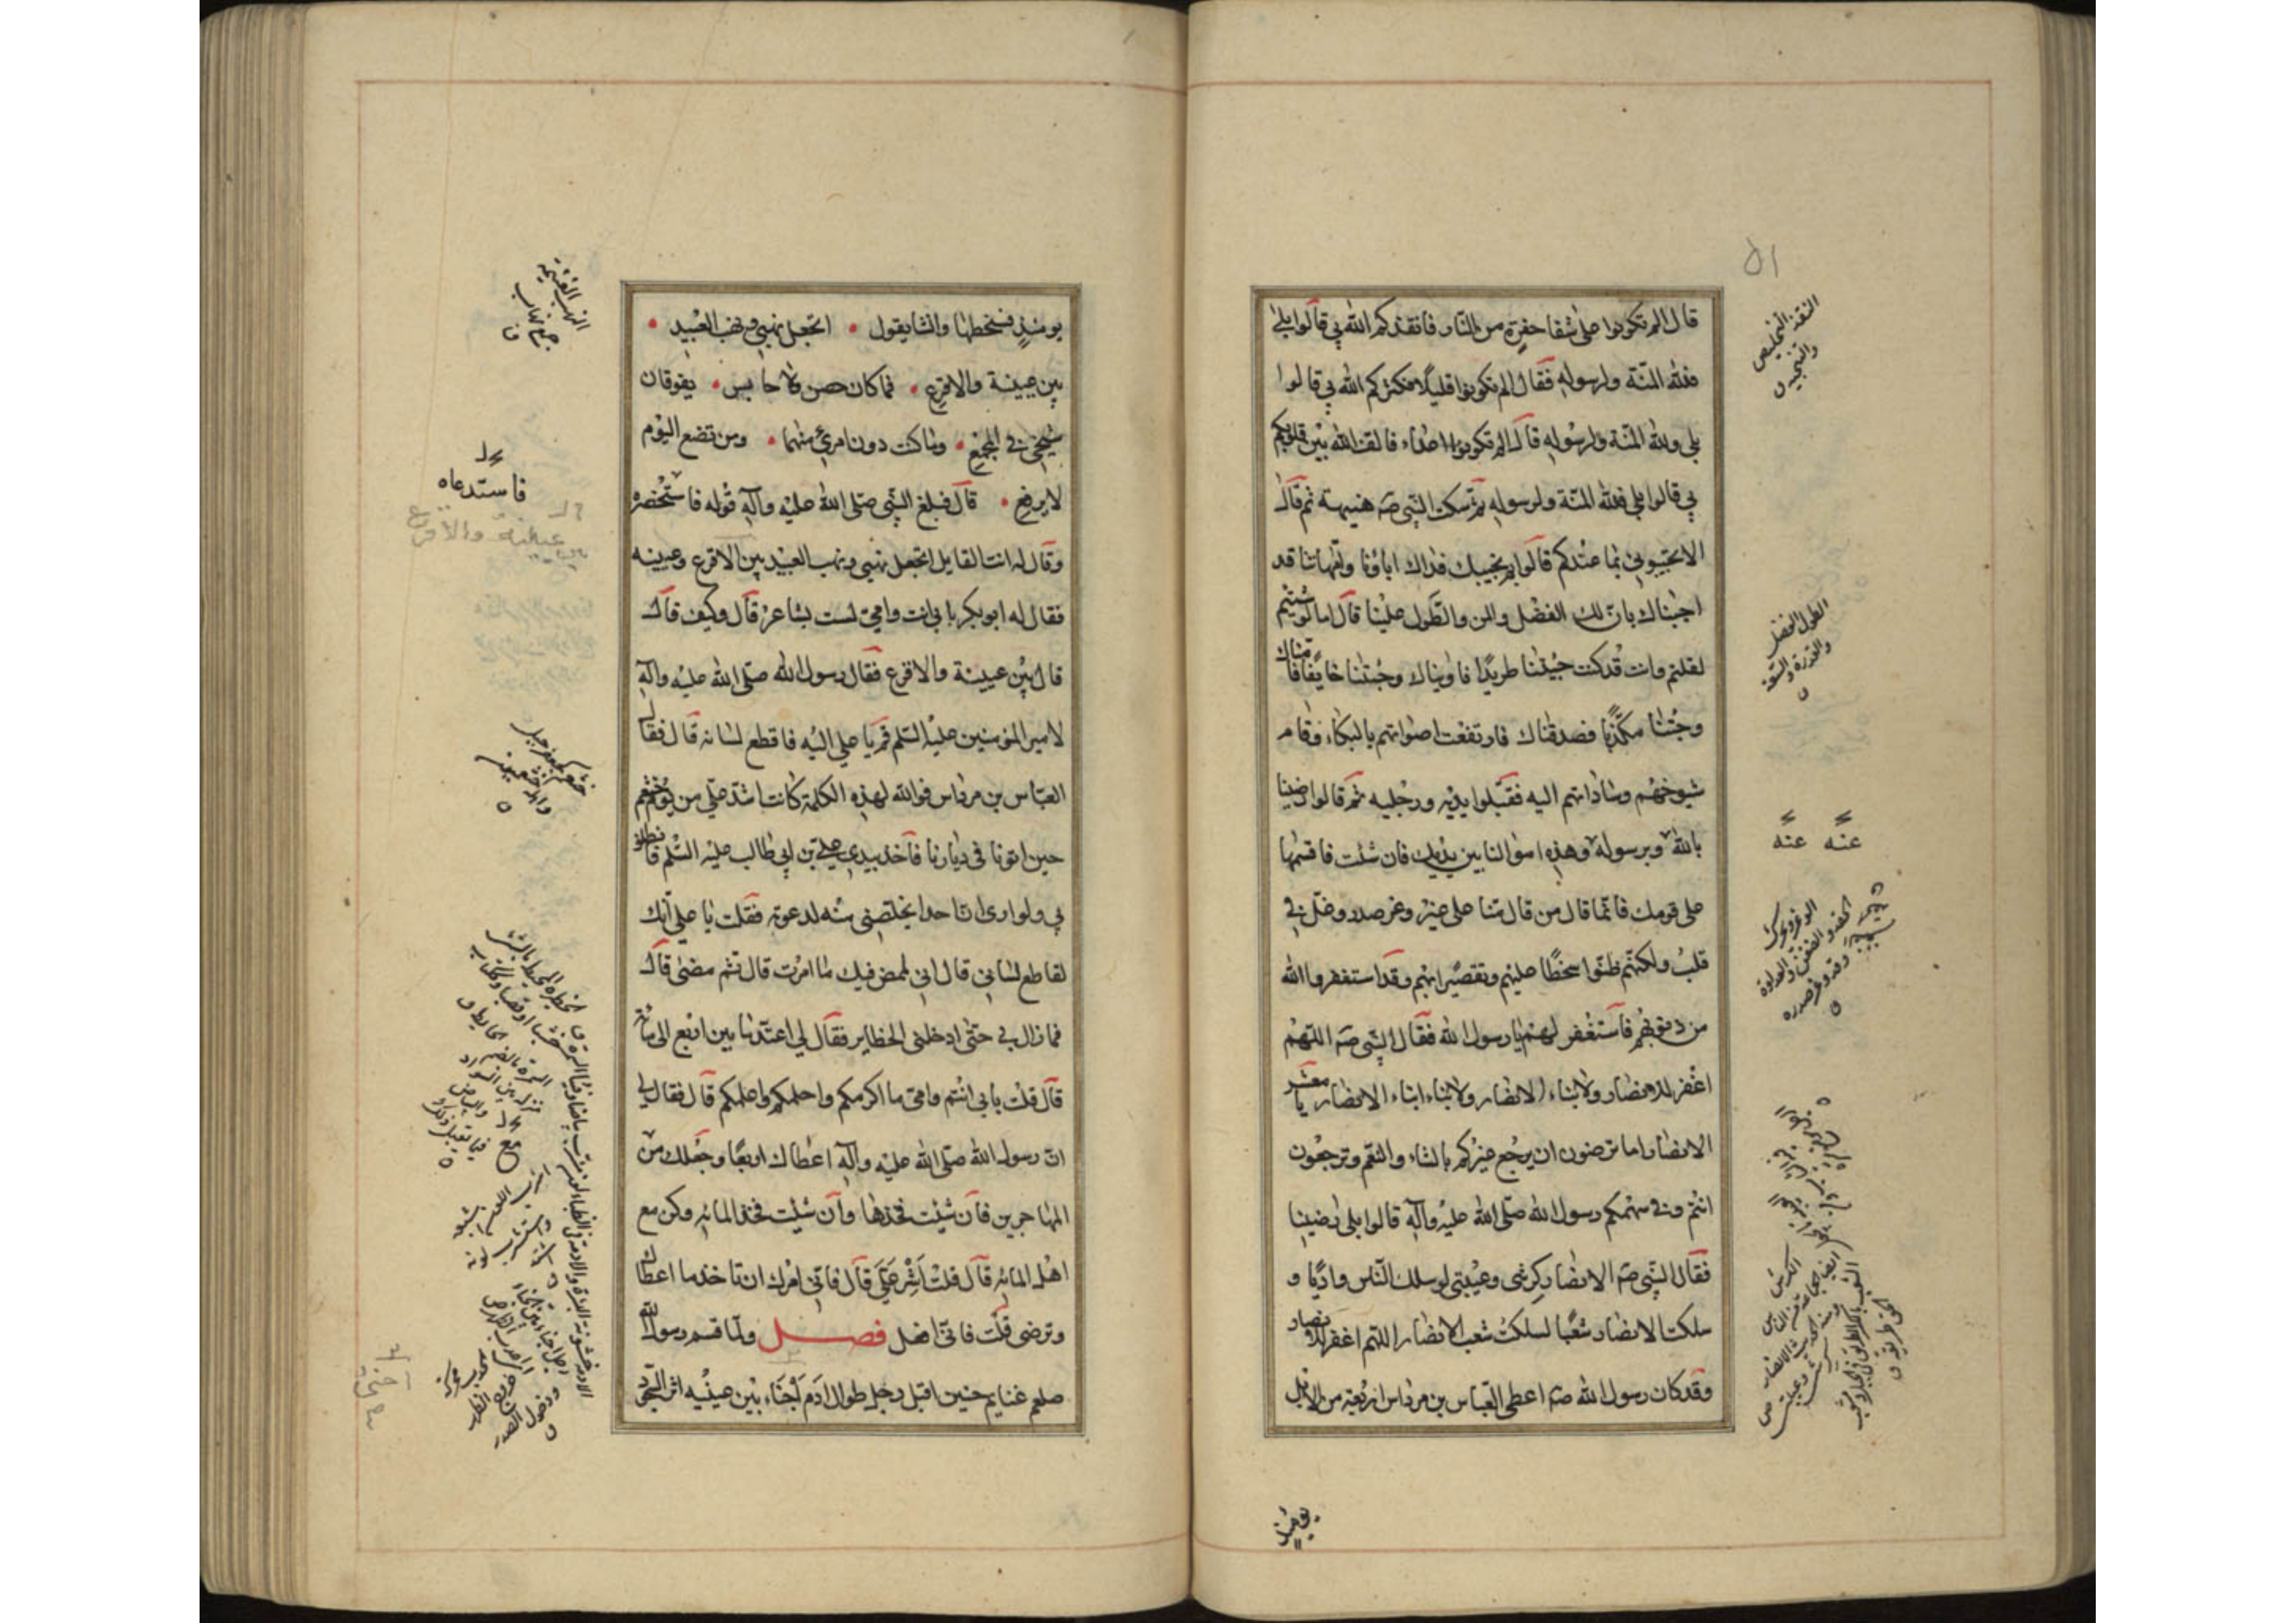 قال الم تكونوا على شفا حفرة من النار فانقذكم الله بي قالوا بلى
فلله المنة ولرسوله فقال الم تكونوا قليلا فكثركم الله بي قالوا
بلى ولله المنة ولرسوله قال الم تكونوا اعداء فالف الله بين قلوبكم
بي قالوا بلى فلله المنة ولرسوله ثم سكت النبي صه هنيهة ثم قال
الا تجيبوني بما عندكم قالوا بم نجيبك فداك اباؤنا وامهاتنا قد
اجبناك بان لك الفضل والمن والطول علينا قال اما لو شئتم
لقلتم وانت قد كنت جئتنا طريدا فاويناك وجئتنا خايفا فامناك
وجئتنا مكذبا فصدقناك فارتفعت اصواتهم بالبكاء وقام
شيوخهم وساداتهم اليه فقبلوا يديه ورجليه ثم قالوا رضينا
بالله وبرسوله وهذه اموالنا بين يديك فان شئت فاقسمها
على قومك فانما قال من قال منا على غير وغر صدر وغل في
قلب ولكنهم ظنوا سخطا عليهم وتقصيرا بهم وقد استغفروا الله
من ذنوبهم فاستغفر لهم يا رسول الله فقال النبي صه اللهم
اغفر للانصار ولابناء الانصار ولابناء ابناء الانصار يا معشر
الانصار اما ترضون ان يرجع غيركم بالشاء والنعم وترجعون
انتم وفي سهمكم رسول الله صلى الله عليه وآله قالوا بلى رضينا
فقال النبي صه الانصار كرشي وعيبتي لو سلك الناس واديا و
سلكت الانصار شعبا لسلكت شعب الانصار اللهم اغفر للانصار
وقد كان رسول الله صه اعطى العباس بن مرداس اربعة من الابل
يومئذ
النقذ التخليص
والتنجية ق
الطول الفضل
والقدرة والسعة
ق
عنه عنه
يومئذ فسخطها وانشا يقول • اتجعل نهبي ونهب العبيد •
بين عيينة والاقرع • فما كان حصن ولا حابس • يفوقان
شيخي في المجمع • وما كنت دون امرئ منهما • ومن تضع اليوم
لا يرفع • قال فبلغ النبي صلى الله عليه وآله قوله فاستحضره
وقال له انت القايل اتجعل نهبي ونهب العبيد بين الاقرع وعيينه
فقال له ابو بكر بابي انت وامي لست بشاعر قال وكيف قال
قال بين عيينة والاقرع فقال رسول الله صلى الله عليه وآله
لامير المؤمنين عليه السلم قم يا علي اليه فاقطع لسانه قال فقال
العباس بن مرداس فوالله لهذه الكلمة كانت اشد علي من يوم خثعم
حين اتونا في ديارنا فاخذ بيدي علي بن ابي طالب عليه السلم فانطلق
بي ولو ارى ان احدا يخلصني منه لدعوته فقلت يا علي انك
لقاطع لساني قال اني لممض فيك ما امرت قال ثم مضى قال
فما زال بي حتى ادخلني الحظاير فقال لي اعتد ما بين اربع الى مائة
قال قلت بابي انتم وامي ما اكرمكم واحلمكم واعلمكم قال فقال لي
ان رسول الله صلى الله عليه وآله اعطاك اربعا وجعلك من
المهاجرين فان شئت فخذها وان شئت فخذ المائه وكن مع
اهل المائه قال قلت اشر علي قال فاني امرك ان تاخذ ما اعطاك
وترضى قلت فاني افعل فصل ولما قسم رسول الله
صلعم غنايم حنين اقبل رجل طوال ادم اجناء بين عينيه اثر السجود
النهب الغنيمة
جمع نهاب
ق
فاستدعاه
عيينة والاقرع